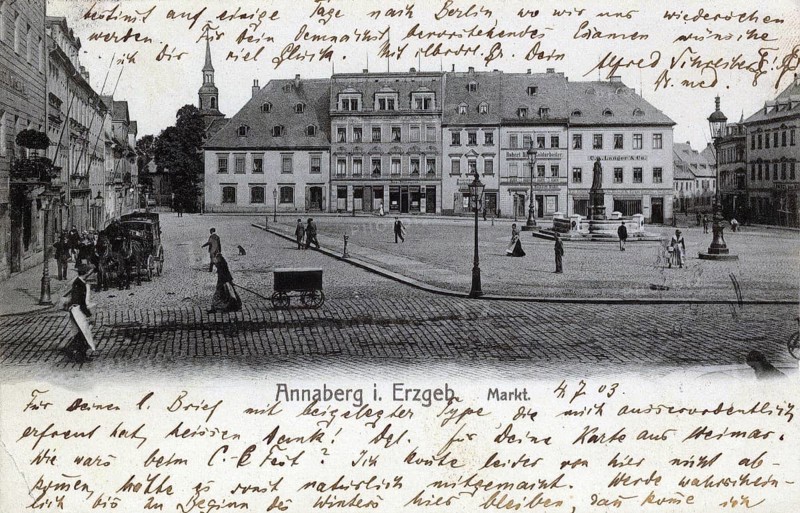 bestimt auf einige Tage nach Berlin, wo wir uns wiedersehen
werden. Für Dein Demnächst bevorstehendes Examen wünsche
ich Dir viel Glück. Mit Dein Alfred Schreiber
Dr. med.
Annaberg i. Erzgeb. Markt.
4.7.03.
Für Deinen l. Brief mit beigelegter Type, die mich ausserordentlich
erfreut hat, heissen Dank! Dgl. für Deine Karte aus Weimar.
Wie wars beim C-C Fest? Ich konte leider von hier nicht ab-
komen, hätte es sonst natürlich mitgemacht. Werde wahrschein-
lich bis zu Beginn des Winters hier bleiben, dan kome ich